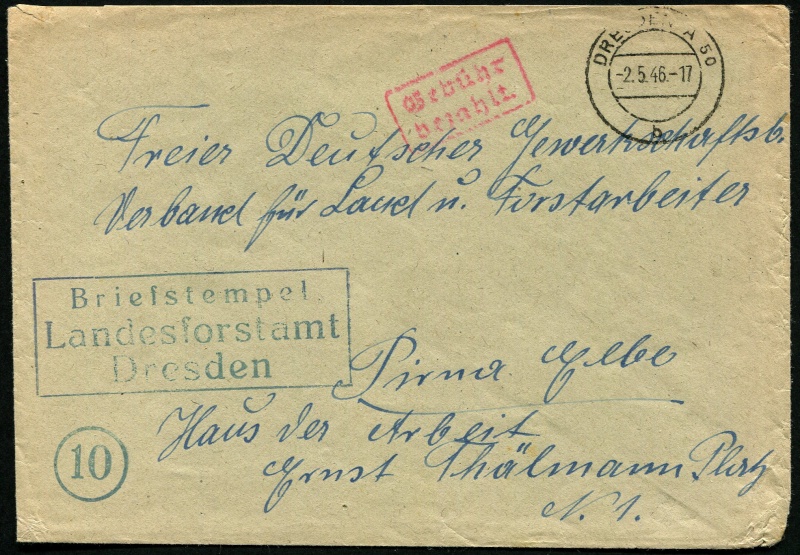 DRESDEN A 50
-2.5.46.-17
b
Gebühr
bezahlt
Freier Deutscher Gewerkschaftsb.
Verband für Land u. Forstarbeiter
Briefstempel
Landesforstamt
Dresden
Pirna Elbe
10
Haus der Arbeit
Ernst Thälmann Platz
N. 1.